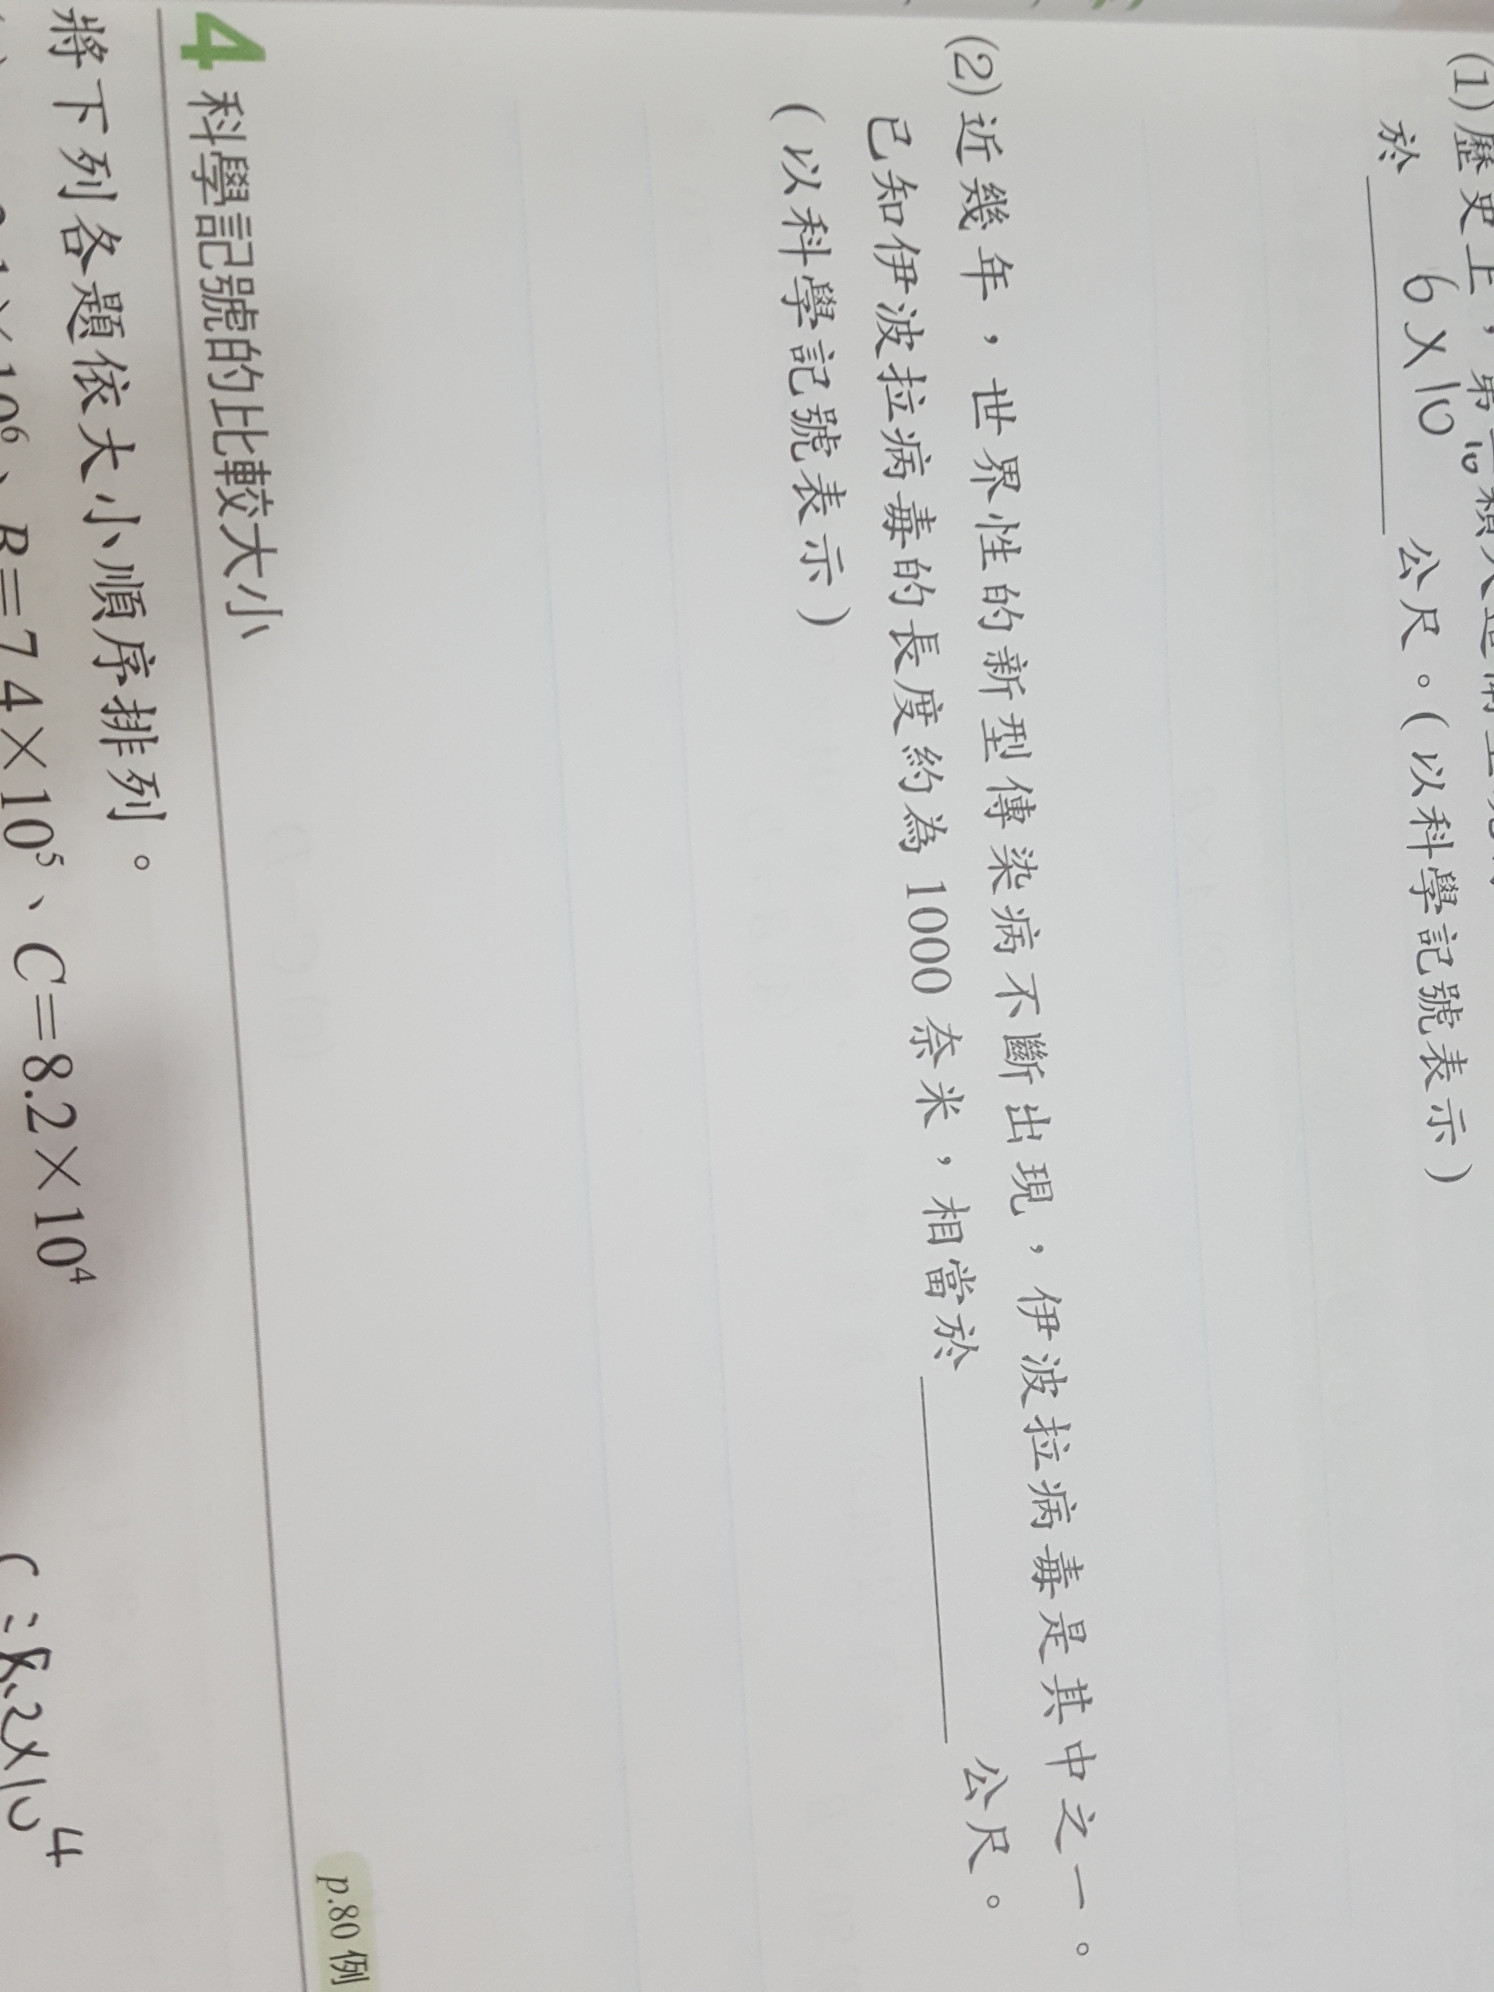 (1)歷史上，第
於 6×10 公尺。(以科學記號表示)
(2)近幾年，世界性的新型傳染病不斷出現，伊波拉病毒是其中之一。
已知伊波拉病毒的長度約為1000奈米，相當於 公尺。
(以科學記號表示)
p.80例
4 科學記號的比較大小
將下列各題依大小順序排列。
×10⁶、B=74×10⁵、C=8.2×10⁴
C=8.2×10⁴